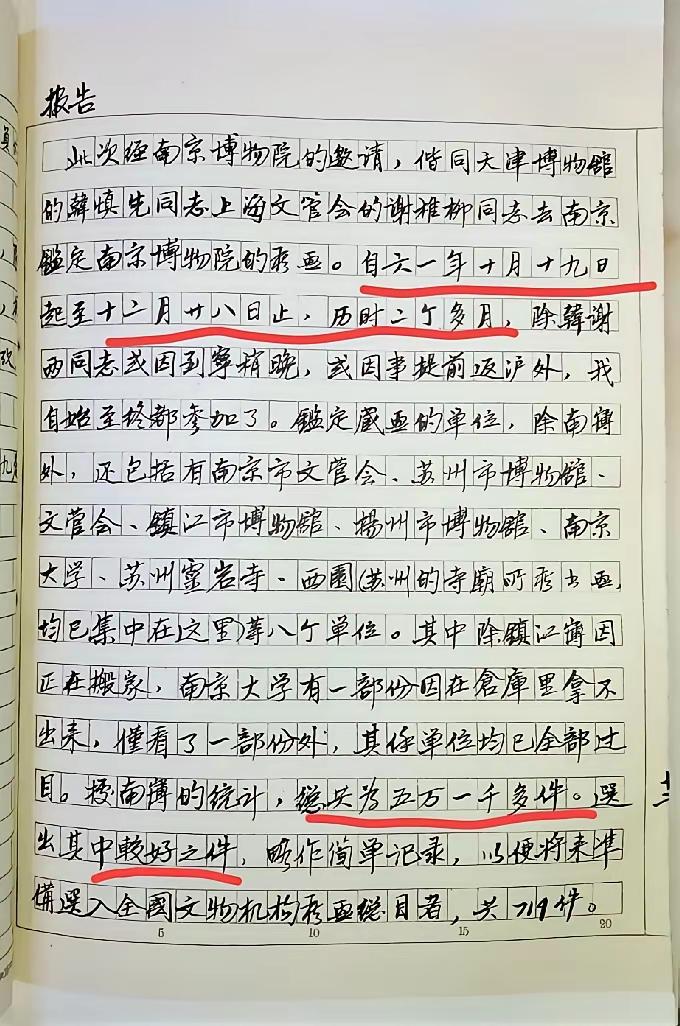 报告
此次经南京博物院的邀请，偕同天津博物馆
的韓慎先同志上海文管会的谢稚柳同志去南京
鑑定南京博物院的藏画。自六一年十月十九日
起至十二月廿八日止，历时二个多月，除韓谢
两同志或因到寧稍晚，或因事提前返沪外，我
自始至终都参加了。鑑定藏画的单位，除南博
外，还包括有南京市文管会、苏州市博物館、
文管会、鎮江市博物館、揚州市博物館、南京
大学、苏州靈岩寺、西園(苏州的寺廟所藏书画，
均已集中在这里)等八个单位。其中除鎮江博因
正在搬家，南京大学有一部份因在倉庫里拿不
出来，僅看了一部份外，其任单位均已全部过
目。据南博的统计，總共为五万一千多件。選
出其中較好之件，略作简单记录，以便将来準
備選入全國文物机构藏画總目者，共719件。
5 10 15 20